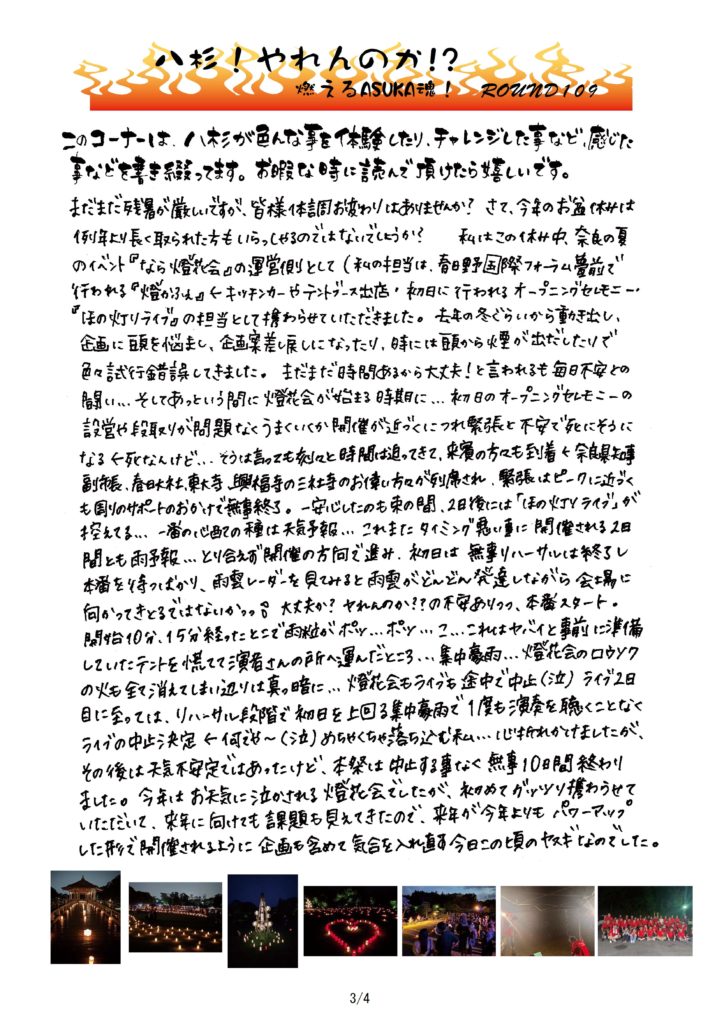 八杉！やれんのか!?
燃えるASUKA魂！ ROUND109
このコーナーは、八杉が色んな事を体験したり、チャレンジした事など、感じた
事などを書き綴ってます。お暇な時に読んで頂けたら嬉しいです。
まだまだ残暑が厳しいですが、皆様体調お変わりはありませんか？ さて、今年のお盆休みは
例年より長く取られた方もいらっしゃるのではないでしょうか？ 私はこの休み中、奈良の夏
のイベント『なら燈花会』の運営側として（私の担当は、春日野国際フォーラム甍前で
行われる『燈かふぇ』←キッチンカーやテントブース出店・初日に行われるオープニングセレモニー・
『ほの灯りライブ』の担当として携わらせていただきました。去年の冬ぐらいから動き出し、
企画に頭を悩まし、企画案差し戻しになったり、時には頭から煙が出だしたりで
色々試行錯誤してきました。まだまだ時間あるから大丈夫！と言われるも毎日不安との
闘い…そしてあっという間に燈花会が始まる時期に…初日のオープニングセレモニーの
設営や段取りが問題なくうまくいくか開催が近づくにつれ緊張と不安で死にそうに
なる←死なんけど…そうは言っても刻々と時間は迫ってきて、来賓の方々も到着←奈良県知事
副市長、春日大社、東大寺、興福寺の三社寺のお偉い方々が列席され、緊張はピークに近づく
も周りのサポートのおかげで無事終了。一安心したのも束の間、2日後には「ほの灯りライブ」が
控えてる…一番の心配の種は天気予報…これまたタイミング悪い事に開催される2日
間とも雨予報…とり合えず開催の方向で進み、初日は無事リハーサルは終了し
本番を待つばかり、雨雲レーダーを見てみると雨雲がどんどん発達しながら会場に
向かってきとるではないかっっ。大丈夫か？ヤれんのか??の不安ありつつ、本番スタート。
開始10分、15分経ったとこで雨粒がポツ…ポツ…こ…これはヤバイと事前に準備
していたテントを慌てて演者さんの所へ運んだところ…集中豪雨…燈花会のロウソク
の火も全て消えてしまい辺りは真っ暗に…燈花会もライブも途中で中止（泣）ライブ2日
目に至っては、リハーサル段階で初日を上回る集中豪雨で1度も演奏を聴くことなく
ライブの中止決定←何でや～（泣）めちゃくちゃ落ち込む私…心折れかけましたが、
その後は天気不安定ではあったけど、本祭は中止する事なく無事10日間終わり
ました。今年はお天気に泣かされる燈花会でしたが、初めてガッツリ携わらせて
いただいて、来年に向けても課題も見えてきたので、来年が今年よりもパワーアップ
した形で開催されるように企画も含めて気合を入れ直す今日この頃のヤスギなのでした。
3/4